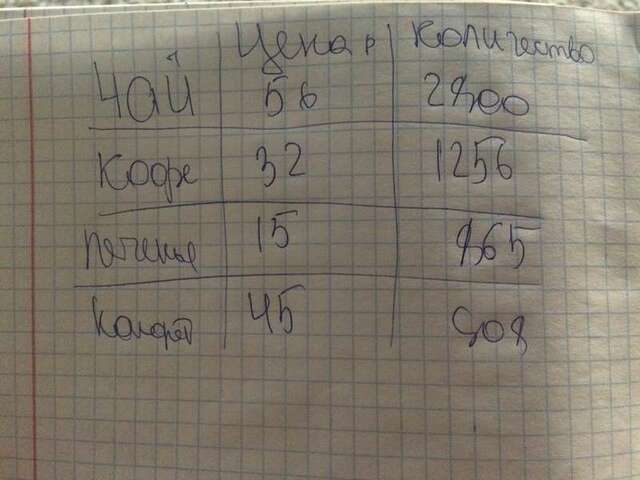 Цена р Количество
Чай 56 2800
Кофе 32 1256
Печенье 15
Конфеты 45 908